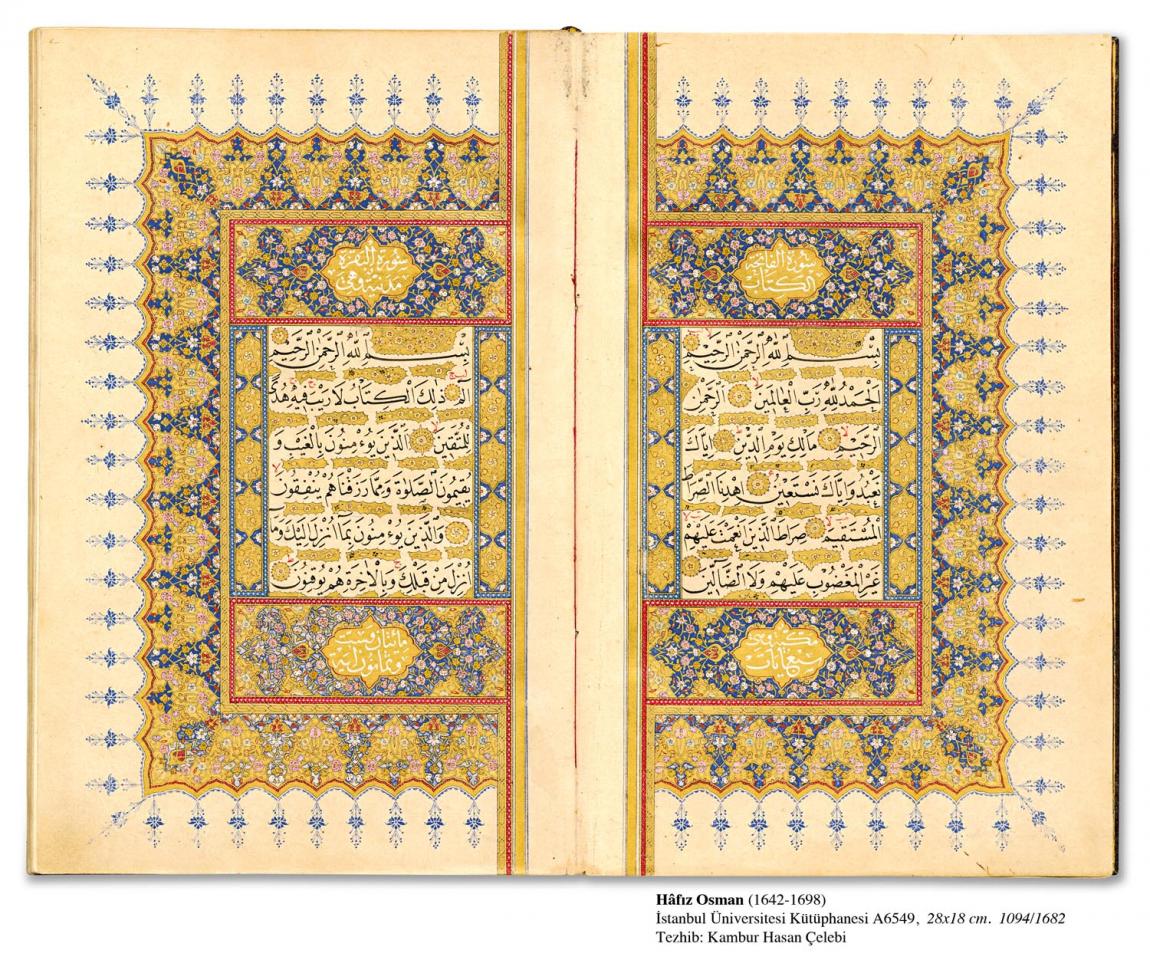 سورة الفاتحة
الكتاب
بِسْمِ اللهِ الرَّحْمٰنِ الرَّحِيمِ
اَلْحَمْدُ لِلّٰهِ رَبِّ الْعَالَمِينَ اَلرَّحْمٰنِ
الرَّحِيمِ مَالِكِ يَوْمِ الدِّينِ اِيَّاكَ
نَعْبُدُ وَاِيَّاكَ نَسْتَعِينُ اِهْدِنَا الصِّرَاطَ
الْمُسْتَقِيمَ صِرَاطَ الَّذِينَ اَنْعَمْتَ عَلَيْهِمْ
غَيْرِ الْمَغْضُوبِ عَلَيْهِمْ وَلَا الضَّالِّينَ
مكية وهي
سبع ايات
سورة البقرة
مدنية وهي
بِسْمِ اللهِ الرَّحْمٰنِ الرَّحِيمِ
الٓمٓ ذٰلِكَ الْكِتَابُ لَا رَيْبَ فِيهِ هُدًى
لِلْمُتَّقِينَ اَلَّذِينَ يُؤْمِنُونَ بِالْغَيْبِ وَ
يُقِيمُونَ الصَّلٰوةَ وَمِمَّا رَزَقْنَاهُمْ يُنْفِقُونَ
وَالَّذِينَ يُؤْمِنُونَ بِمَا اُنْزِلَ اِلَيْكَ وَمَا
اُنْزِلَ مِنْ قَبْلِكَ وَبِالْاٰخِرَةِ هُمْ يُوقِنُونَ
مائتان وست
وثمانون اية
Hâfız Osman (1642-1698)
İstanbul Üniversitesi Kütüphanesi A6549, 28x18 cm. 1094/1682
Tezhib: Kambur Hasan Çelebi